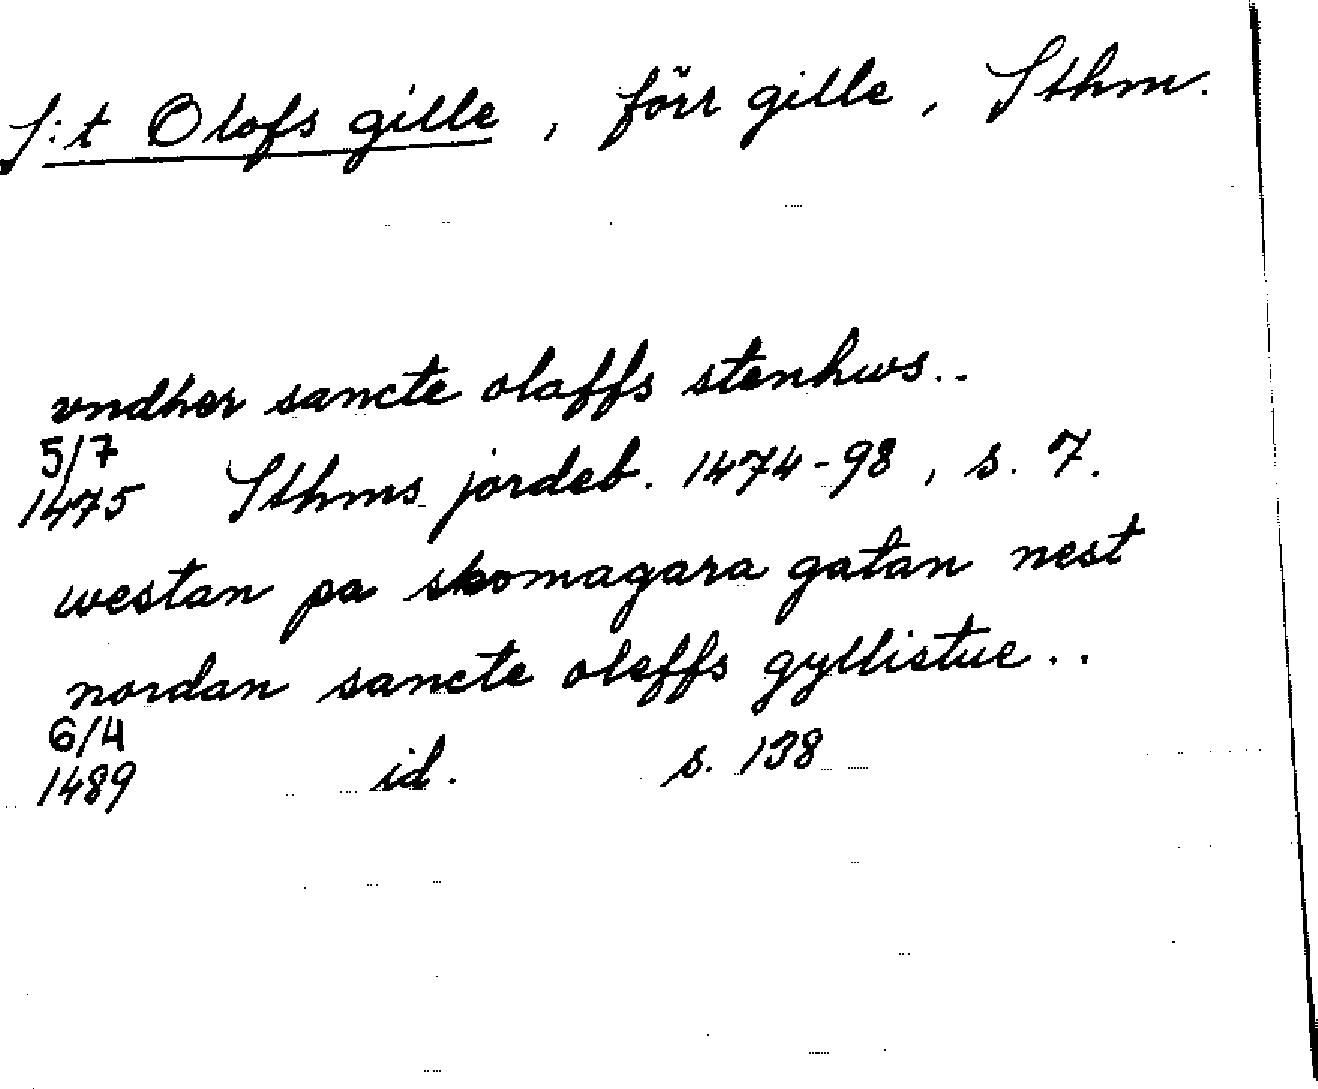 S:t Olofs gille, förr gille, Sthm.
vndher sancte olaffs stenhws..
5/7
1475 Sthms jordeb. 1474-98, s. 7.
westan pa skomagara gatan nest
nordan sancte oleffs gyllistue..
6/4
1489 id. s. 138